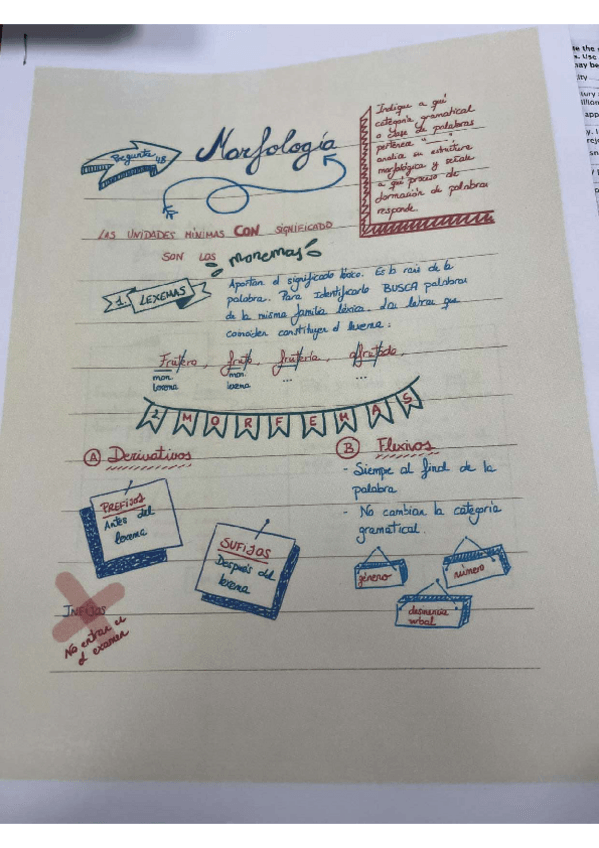 Pregunta 4B
Morfología
Indique a qué
categoría gramatical
o clase de palabras
pertenece "
analice su estructura
morfológica y señale
a qué proceso de
formación de palabras
responde.
LAS UNIDADES MÍNIMAS CON SIGNIFICADO
SON LOS monemas
1. LEXEMAS
Aportan el significado léxico. Es la raíz de la
palabra. Para identificarlo BUSCA palabras
de la misma familia léxica. Las letras que
coinciden constituyen el lexema:
Frutero, fruto, frutería, afrutado.
mon. mon. ... ...
lexema lexema
2. MORFEMAS
A Derivativos
PREFIJOS
Antes del
lexema
SUFIJOS
Después del
lexema
INFIJOS
No entran en
el examen
B Flexivos
- Siempe al final de la
palabra
- No cambian la categoría
gramatical.
género
número
desinencia
verbal